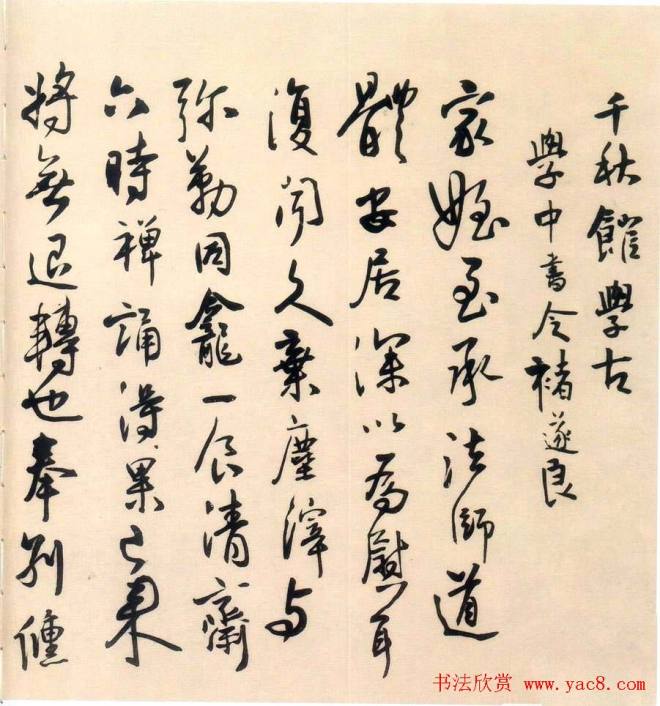 千秋館學古
學中書令褚遂良
家姪至承法師道
體安居深以為慰耳
復聞久棄塵滓与
弥勒同龕一食清齋
六時禅誦得果已來
將無退轉也奉別儵
书法欣赏 www.yac8.com